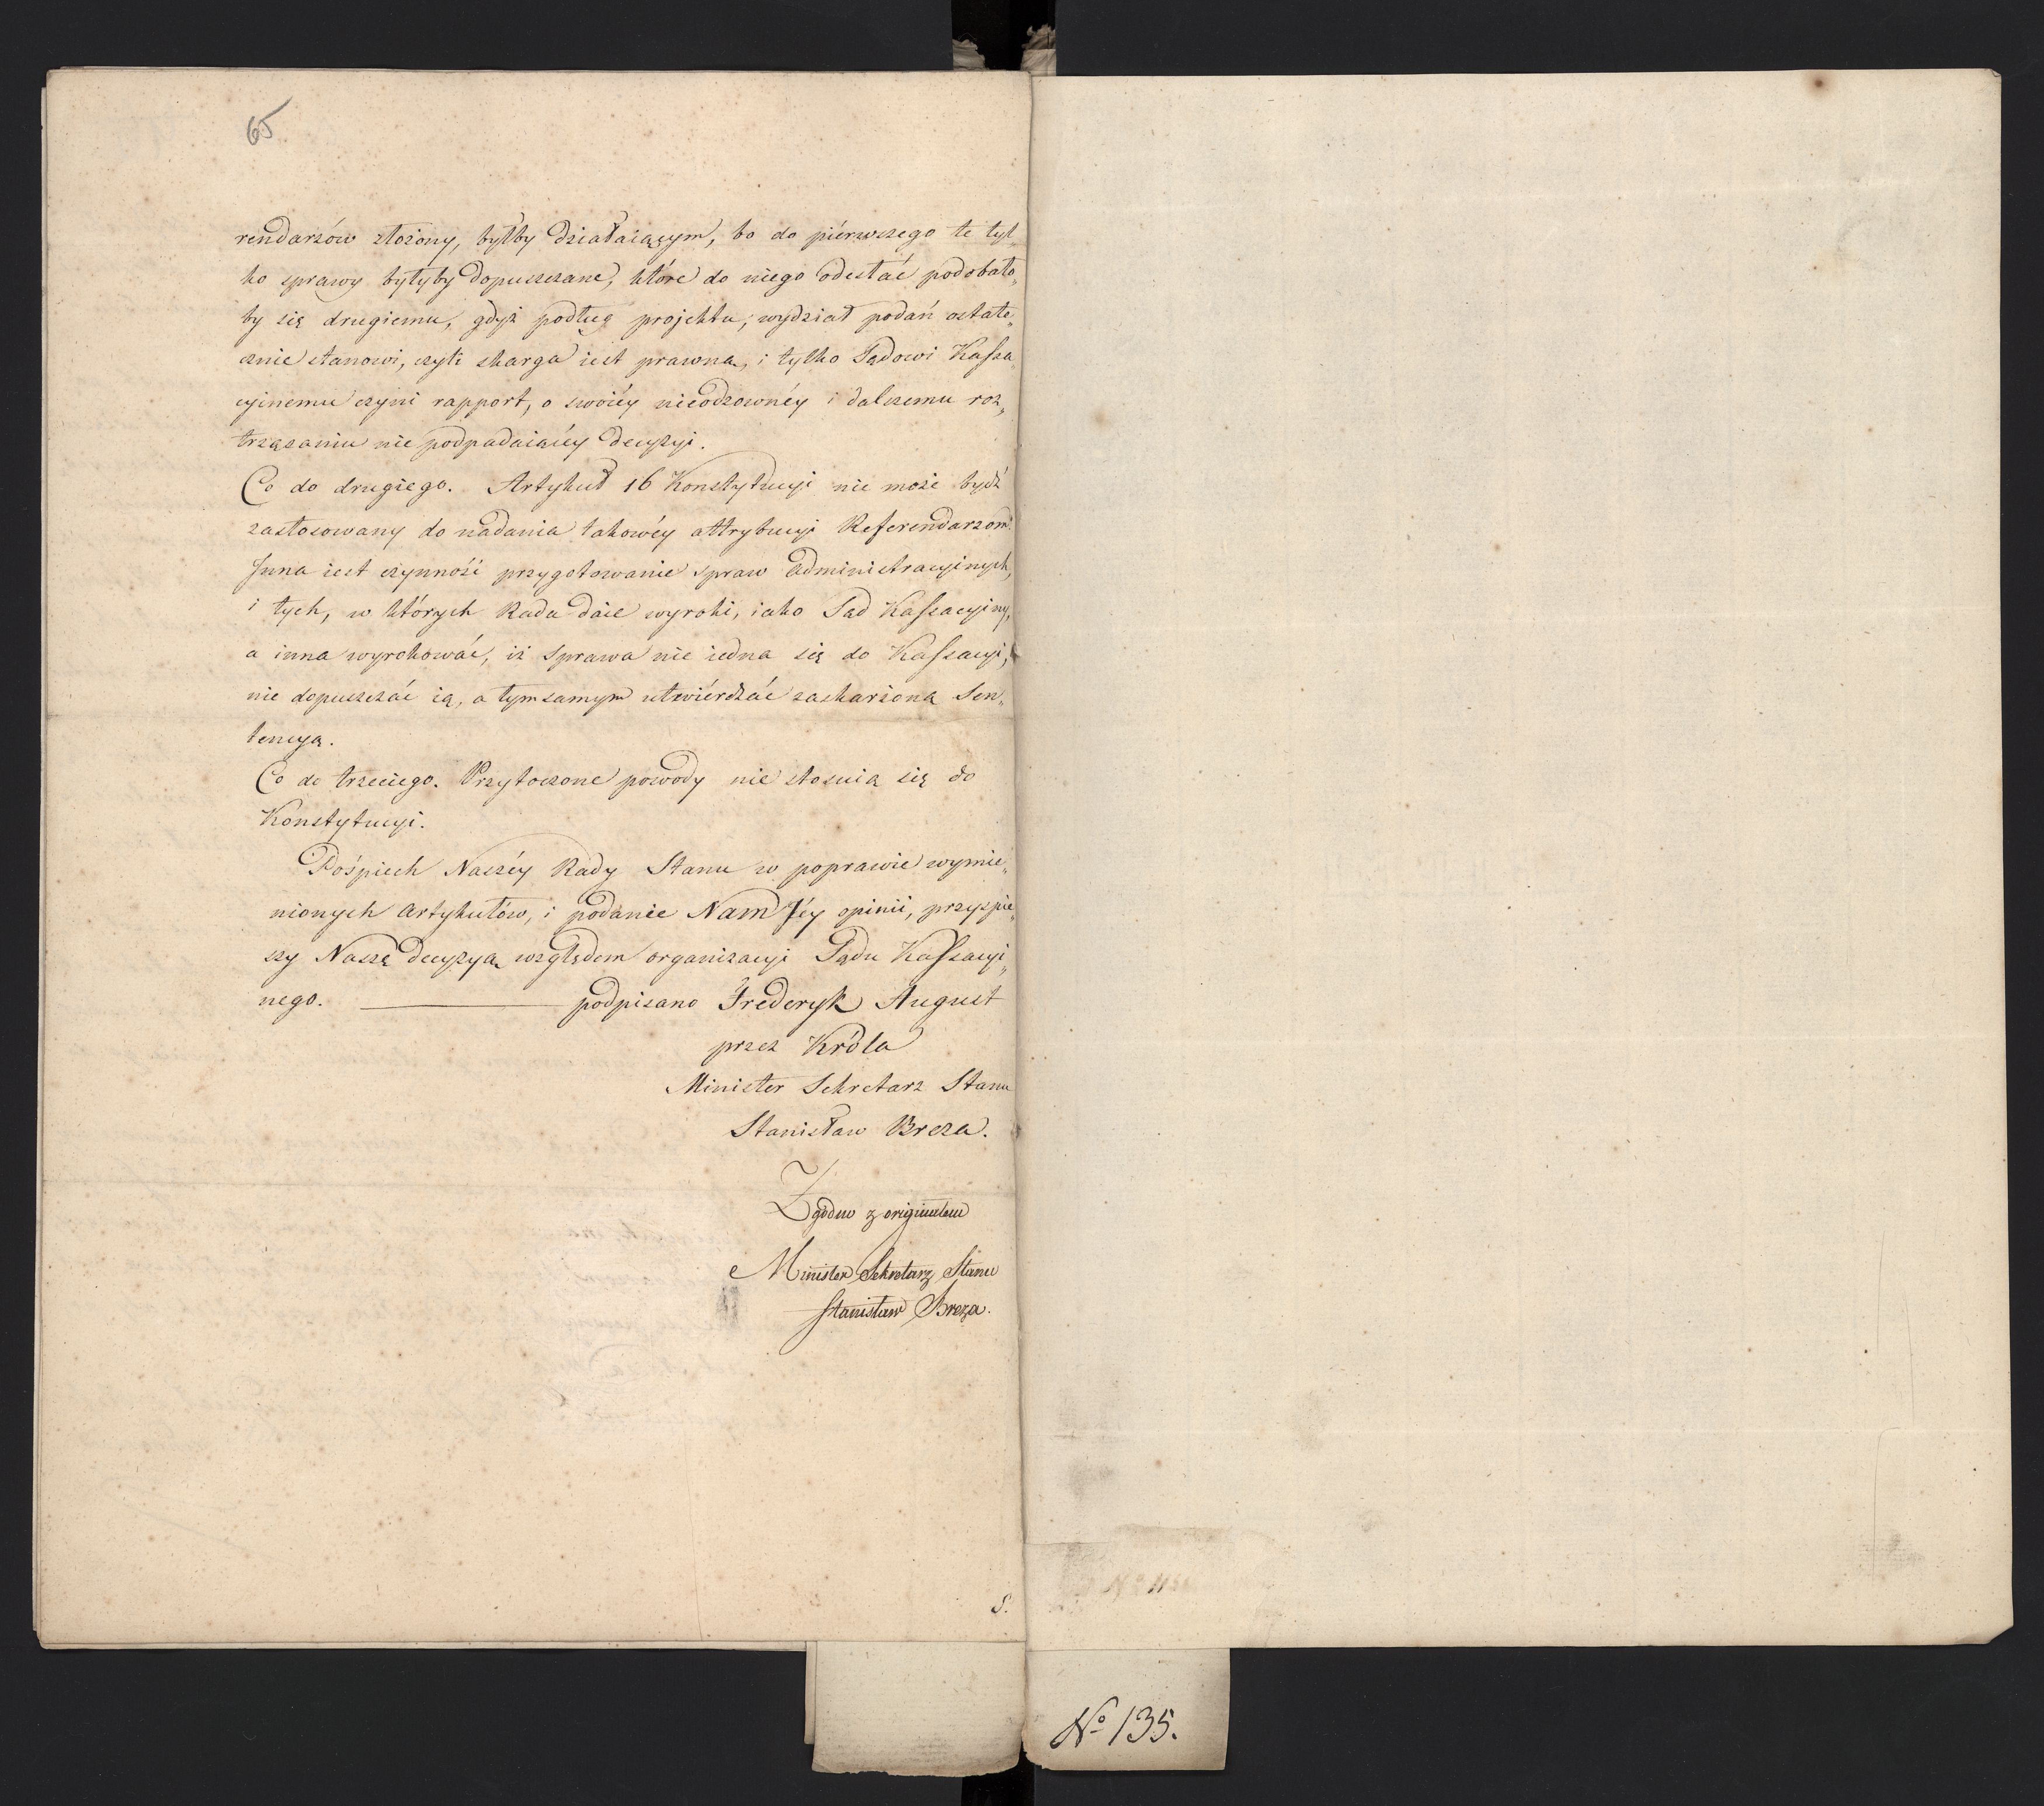 65
rendarzów złożony, byłby działaiącym, bo do piérwszego te tyl„
ko sprawy byłyby dopuszczane, które do niego odesłać podobało„
by się drugiemu, gdyż podług projektu, wydział podań ostate„
cznie stanowi, czyli skarga iest prawna, i tylko Sądowi Kassa„
cyinemu czyni rapport, o swoiéy nieodzownéy i dalszemu roz„
trząsaniu nie podpadaiącéy decyzyi.
Co do drugiego. Artykuł 16 Konstytucyi nie może bydź
zastosowany do nadania takowéy attrybucyi Referendarzom.
Inna iest czynność przygotowanie spraw administracyinych,
i tych, w których Rada daie wyroki, iako Sąd Kassacyiny,
a inna wyrokować, iż sprawa nie iedna się do Kassacyi,
nie dopuszczać ią, a tym samym utwierdzać zaskarzoną Sen„
tencyą.
Co do trzeciego. Przytoczone powody nie stosuią się do
Konstytucyi.
Pośpiech Naszéy Rady Stanu w poprawie wymie„
nionych artykułów, i podanie Nam Jéy opinii, przyspie„
szy Naszą decyzyą względem organizacyi Sądu Kassacyi„
nego. podpisano Frederyk August
przez Króla
Minister Sekretarz Stanu
Stanisław Breza.
Zgodno z originałem
Minister Sekretarz Stanu
Stanisław Breza.
S.
No 135.